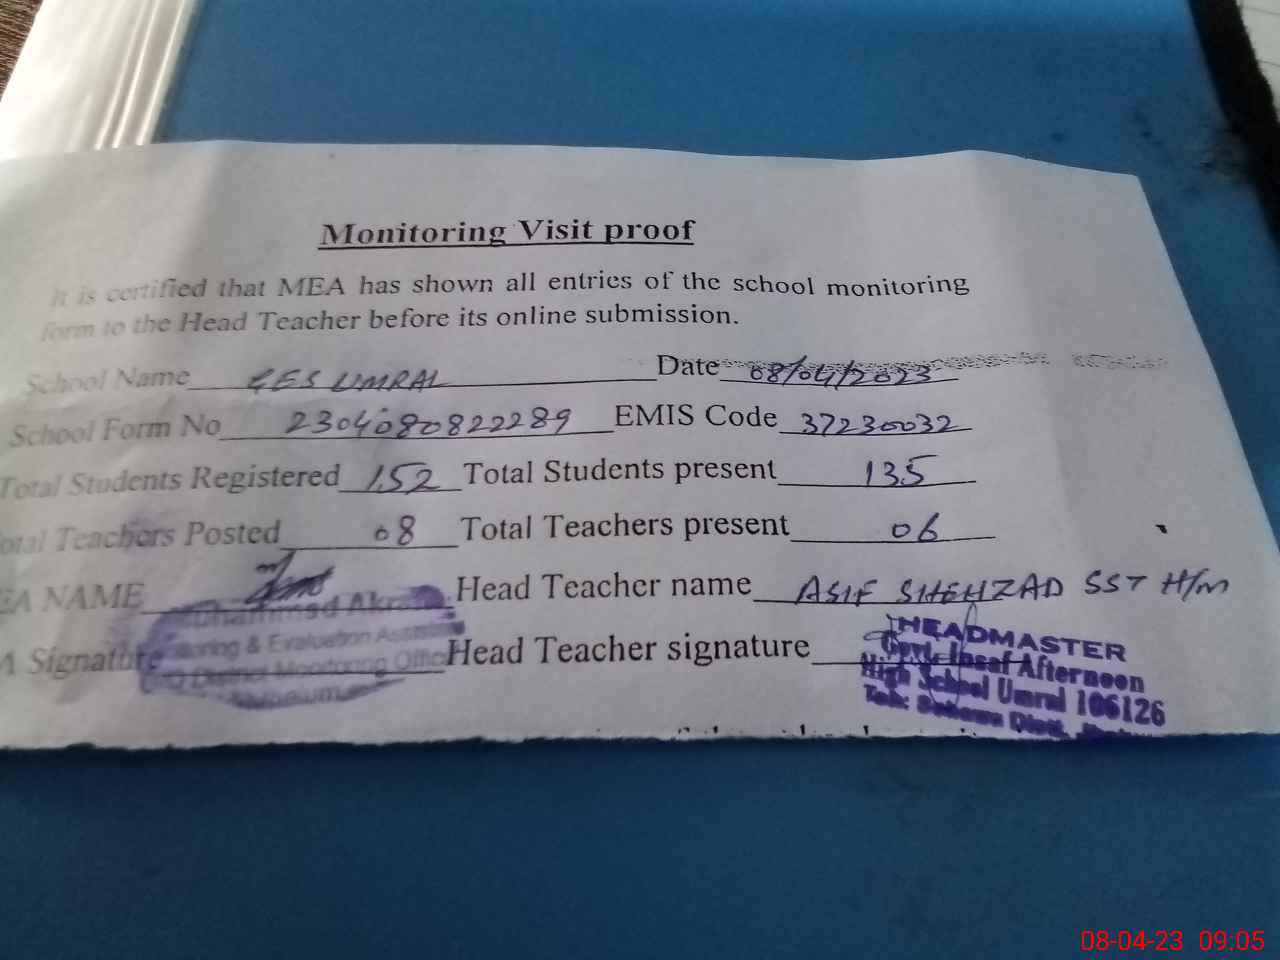 Monitoring Visit proof
It is certified that MEA has shown all entries of the school monitoring
form to the Head Teacher before its online submission.
School Name GES UMRAL Date 08/04/2023
School Form No 2304080822289 EMIS Code 37230032
Total Students Registered 152 Total Students present 135
otal Teachers Posted 08 Total Teachers present 06
EA NAME Head Teacher name ASIF SHEHZAD SST H/M
A Signature Head Teacher signature
Akra
oring & Evaluation Assista
District Monitoring Offic
HEADMASTER
Govt. Insaf Afternoon
High School Umral 106126
Teh:
08-04-23 09:05